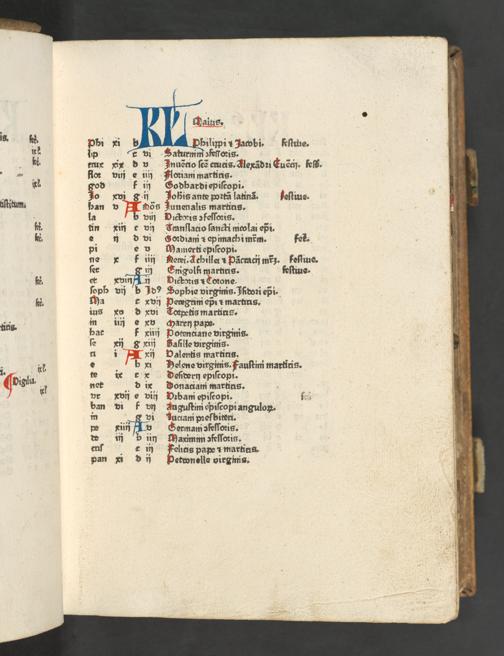 KL Maius.
Phi xi b Philippi ⁊ Jacobi. festiue.
lip c vi Saturnini ↄfessoris.
crux xix d v Inuẽcio scẽ crucis. Alexãdri
flor viii e iiii Floriani martiris.
god f iii Godhardi episcopi.
Jo xvi g ii Johis ante portã latinã. festiue.
han v A Non̄s Juuenalis martiris.
la b viii Victoris ↄfessoris.
tin xiii c vii Translacio sancti nicolai ep̄i.
e ii d vi Gordiani ⁊ epimachi mr̃m. fef.
pi e v Mamerti episcopi.
ne x f iiii Nerei. Achillei ⁊ Pãcracii mr̃. festiue.
ser g iii Seruacii festiue.
et xviii A ii Victoris ⁊ Corone.
soph vii b Id9 Sophie virginis.
Ma c xvii Peregrini ep̄i ⁊ martiris.
ius xv d xvi Torpetis martiris.
in iiii e xv
hac f xiiii Potenciane virginis.
se xii g xiii Basille virginis.
ri i A xii Valentis martiris.
e b xi Helene virginis. Faustini martiris.
te ix c x Desiderii episcopi.
net d ix Donaciani martiris.
vr xvii e viii Vrbani episcopi.
ban vi f vii Augustini episcopi angulorꝝ.
in g vi Luciani presbiteri.
pe xiiii A v Germani ↄfessoris.
tr iii b iiii Maximini ↄfessoris.
cris c iii Felicis pape ⁊ martiris.
pan xi d ii Petronelle virginis.
Vigilia.